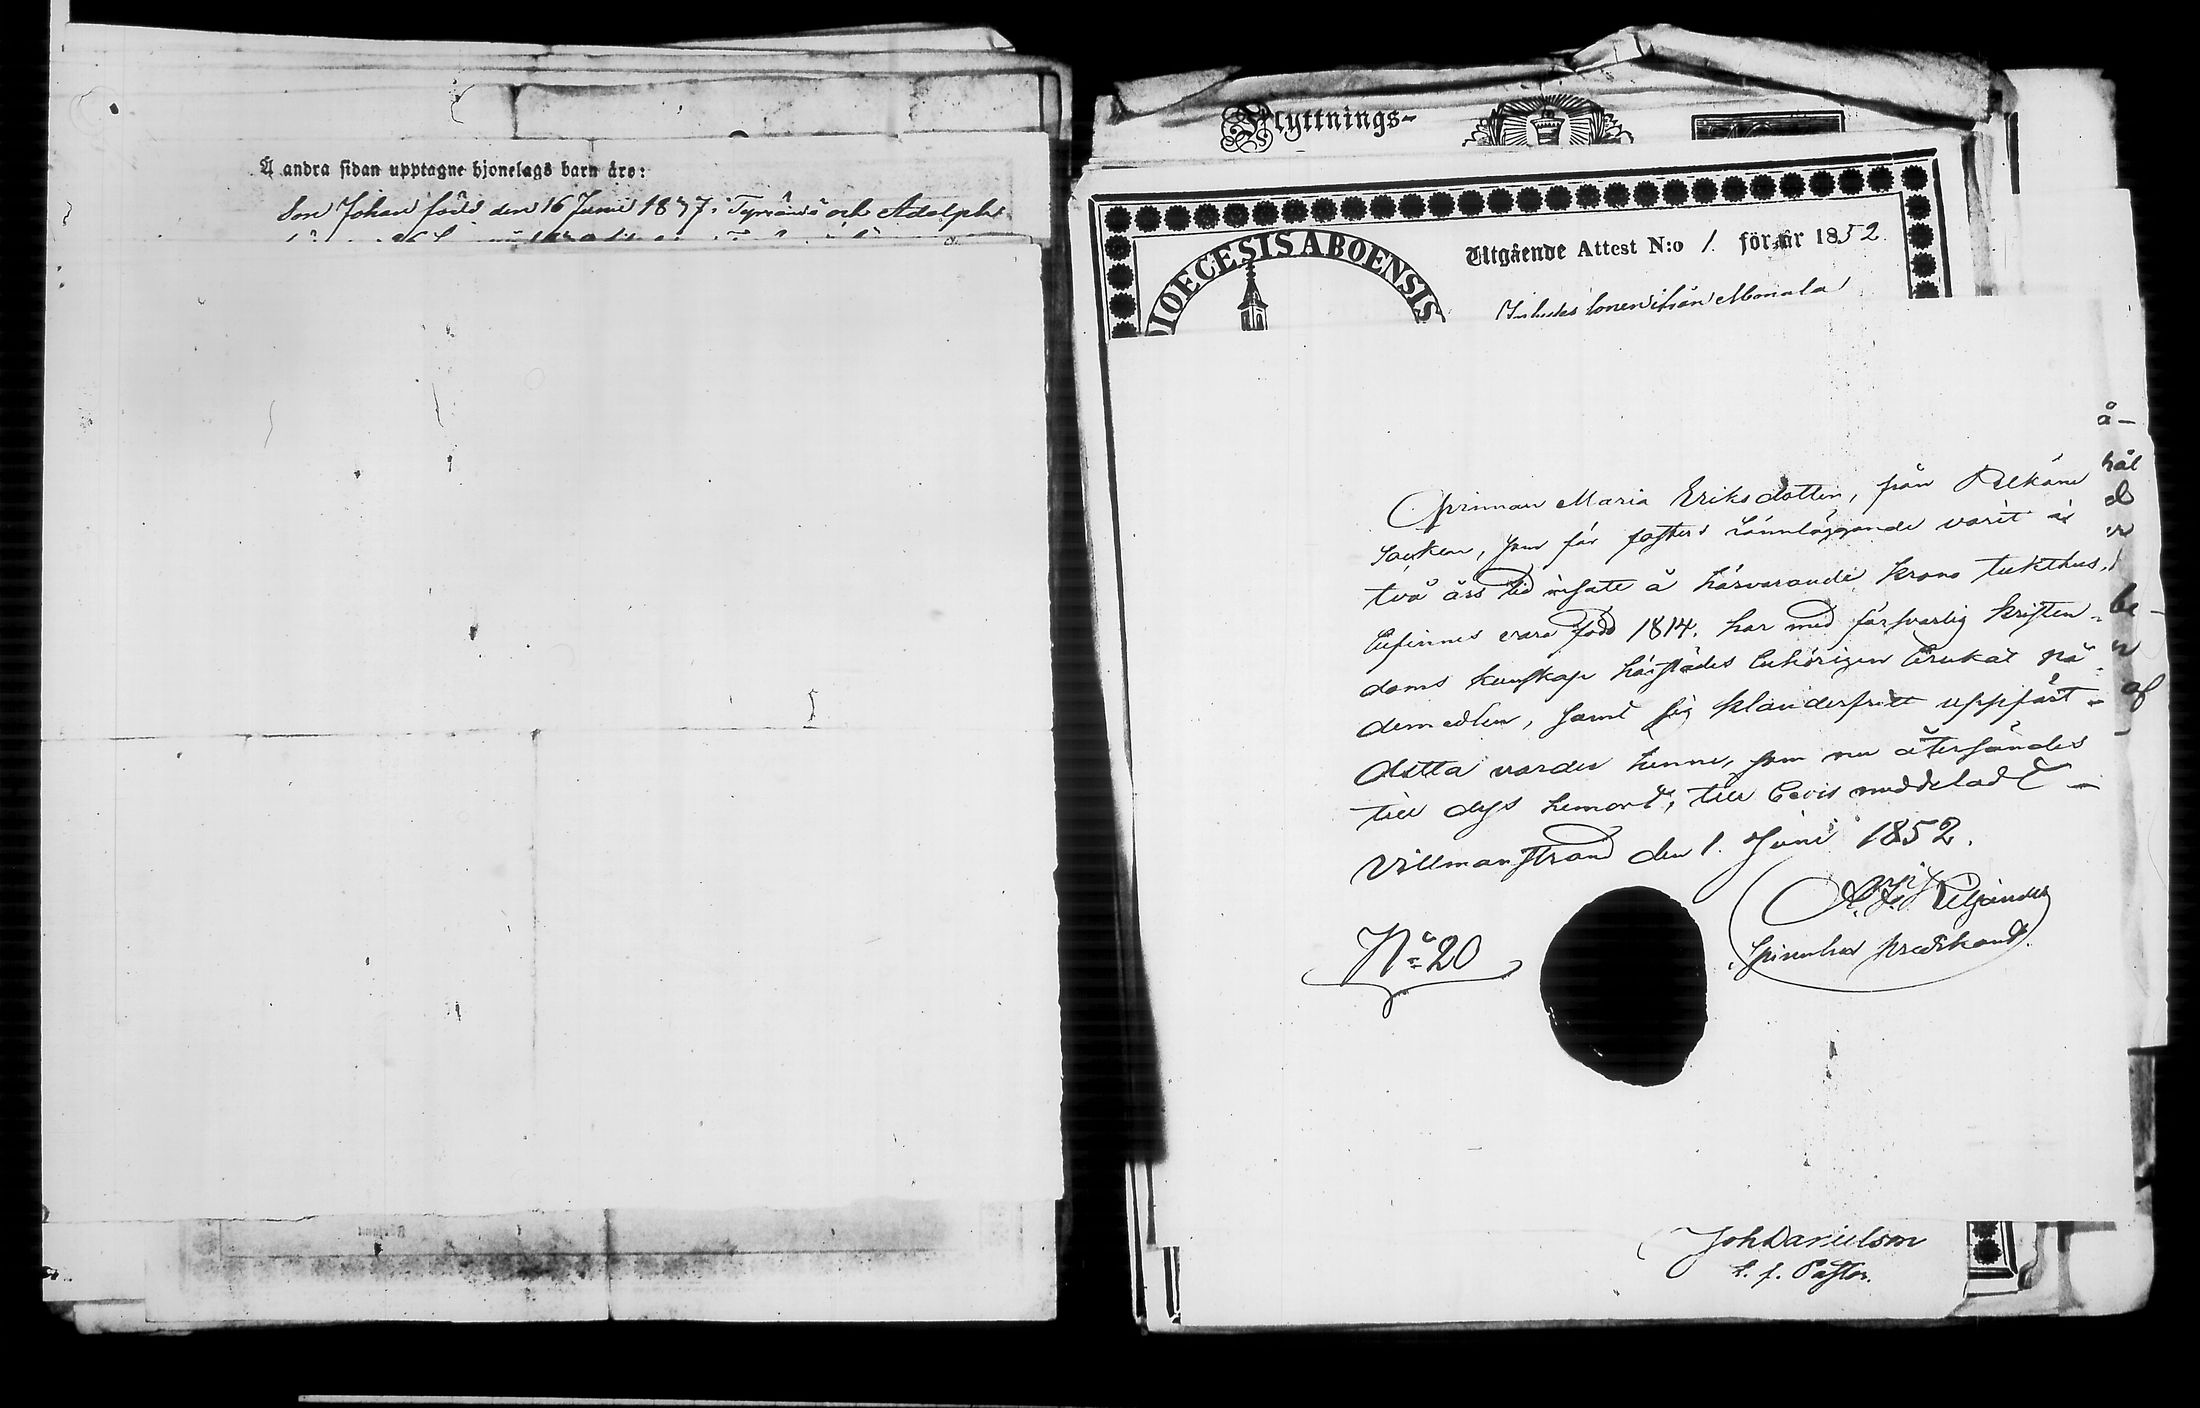 Å andra sidan upptagne hjonelags barn äro:
Son Johan född den 16 Junii 1837 i Tyrväntö och Adolph
Flyttnings-
DIOECESIS ABOENSIS
Utgående Attest N:o 1. för år 1852
ifrån Momala
å-
Qvinnan Maria Eriksdotter, från Pelkäne
Socken, som för fosters lönnläggande varit i
två års tid insatt å härvarande krono tukthus,
befinnes vara född 1814, har med försvarlig kristen-
doms kunskap härstädes behörigen brukat nå-
demedlen, samt sig klanderfritt uppfört -
Detta varder henne, som nu återsändes
till dess hemort, till bevis meddeladt -
Villmanstrand den 1. Juni 1852.
Spinnhus Predikant.
No 20
Joh Danielson
v. p. Pastor.